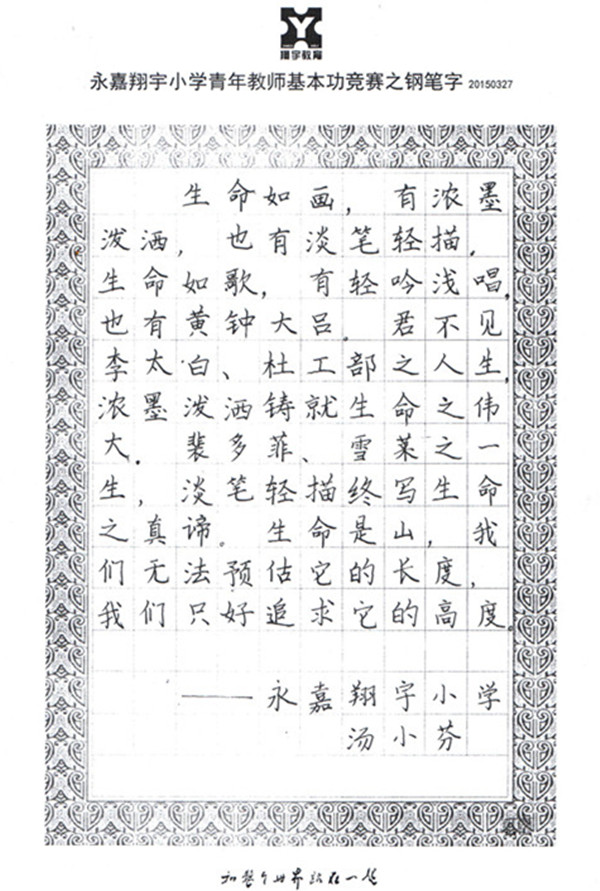 翔宇教育
永嘉翔宇小学青年教师基本功竞赛之钢笔字 20150327
生命如画，有浓墨
泼洒，也有淡笔轻描，
生命如歌，有轻吟浅唱，
也有黄钟大吕．君不见
李太白、杜工部之人生，
浓墨泼洒铸就生命之伟
大．裴多菲、雪莱之一
生，淡笔轻描终写生命
之真谛。生命是山，我
们无法预估它的长度，
我们只好追求它的高度。
——永嘉翔宇小学
汤小芬
和整个世界站在一起